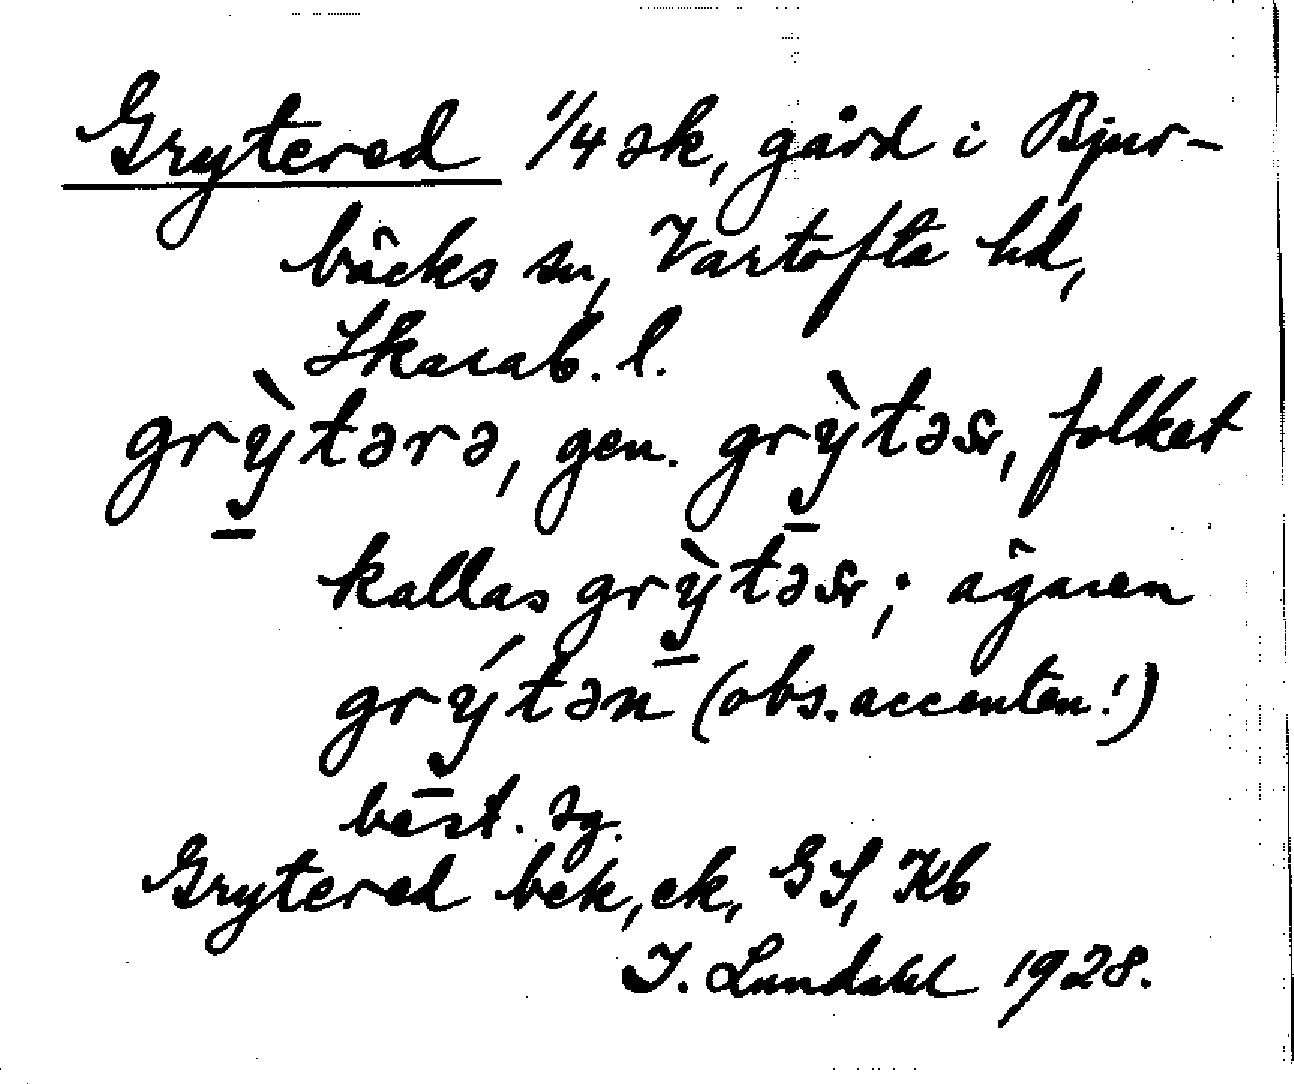 Grytered 1/4 sk, gård i Bjur-
bäcks sn, Vartofta hd,
Skarab. l.
grỳ̱tərə, gen. grỳ̱təsr, folket
kallas grỳ̱təsr; ägaren
grý̱tən (obs. accenten!)
best. sg.
Grytered bek, ek, GS, Kb
I. Lundahl 1928.